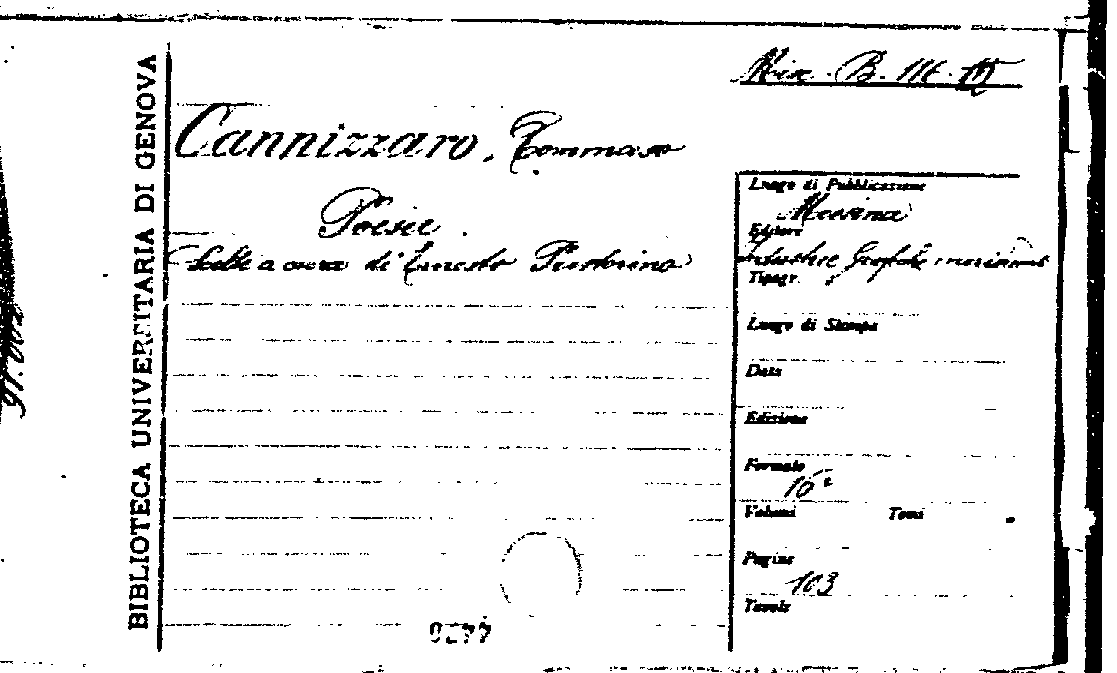 BIBLIOTECA UNIVERSITARIA DI GENOVA
Misc. B. 114.
Cannizzaro, Tommaso
Poesie.
Scelte a cura di Ernesto
Luogo di Pubblicazione
Messina
Editore
Industrie Grafiche meridionali
Tipogr.
Luogo di Stampa
Data
Edizione
Formato
16°
Volumi Tomi
Pagine
103
Tavole